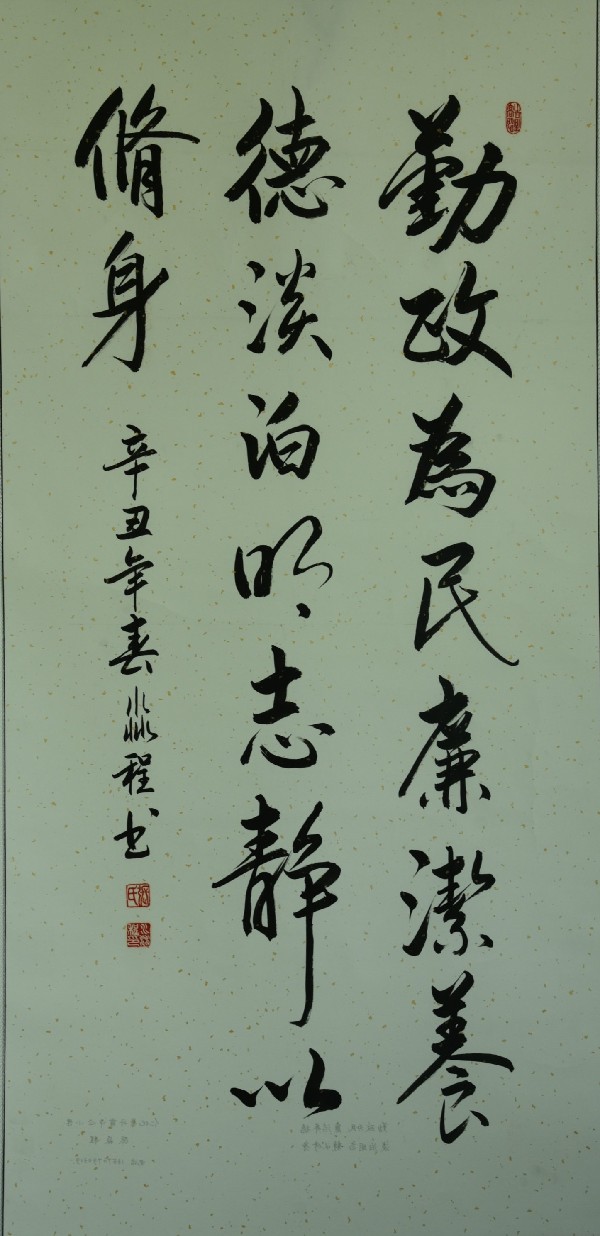 勤政為民廉潔養
德淡泊明志靜以
脩身
辛丑年春淼程书